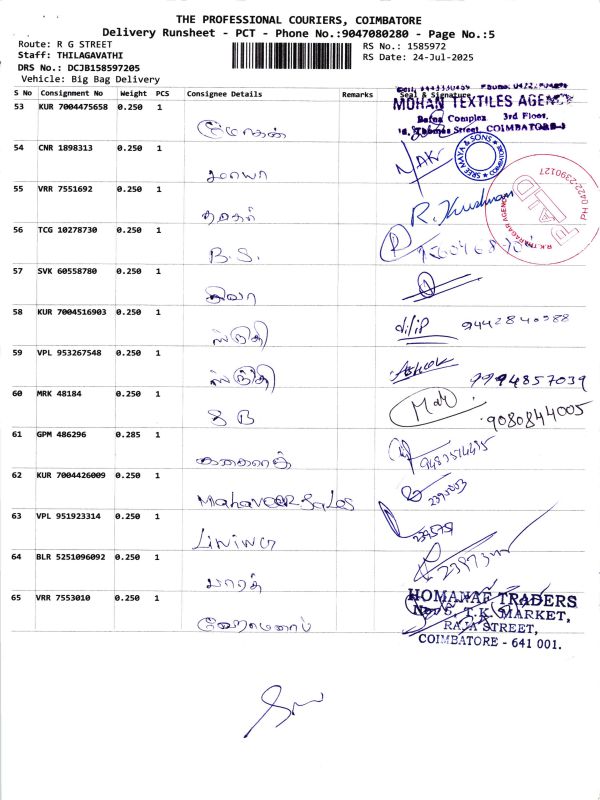 THE PROFESSIONAL COURIERS, COIMBATORE
Delivery Runsheet - PCT - Phone No.:9047080280 - Page No.:5
Route: R G STREET
Staff: THILAGAVATHI
DRS No.: DCJB158597205
Vehicle: Big Bag Delivery
RS No.: 1585972
RS Date: 24-Jul-2025
S No Consignment No Weight PCS Consignee Details Remarks Seal & Signature
MOHAN TEXTILES AGENCY
Complex 3rd Floor,
Street, COIMBATORE-1
53 KUR 7004475658 0.250 1 மோகன்
54 CNR 1898313 0.250 1 மாயா
SREE MAYA & SONS COIMBATORE
55 VRR 7551692 0.250 1 R. Krishnan
0422-2390127
56 TCG 10278730 0.250 1 B.S.
57 SVK 60558780 0.250 1 சிவா
58 KUR 7004516903 0.250 1 ஸ்ருதி dilip
59 VPL 953267548 0.250 1 ஸ்ருதி Ashok 9994857039
60 MRK 48184 0.250 1 9080844005
61 GPM 486296 0.285 1
62 KUR 7004426009 0.250 1 Mahaveer Sales
63 VPL 951923314 0.250 1
64 BLR 5251096092 0.250 1 பாரத்
65 VRR 7553010 0.250 1
HOMANAF TRADERS
No. 5, T.K. MARKET,
RAJA STREET,
COIMBATORE - 641 001.